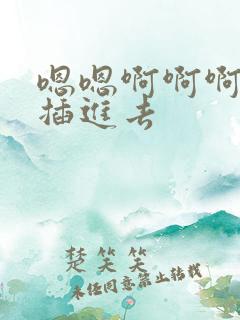 嗯嗯啊啊啊
插进去
楚笑笑
未经同意禁止转载